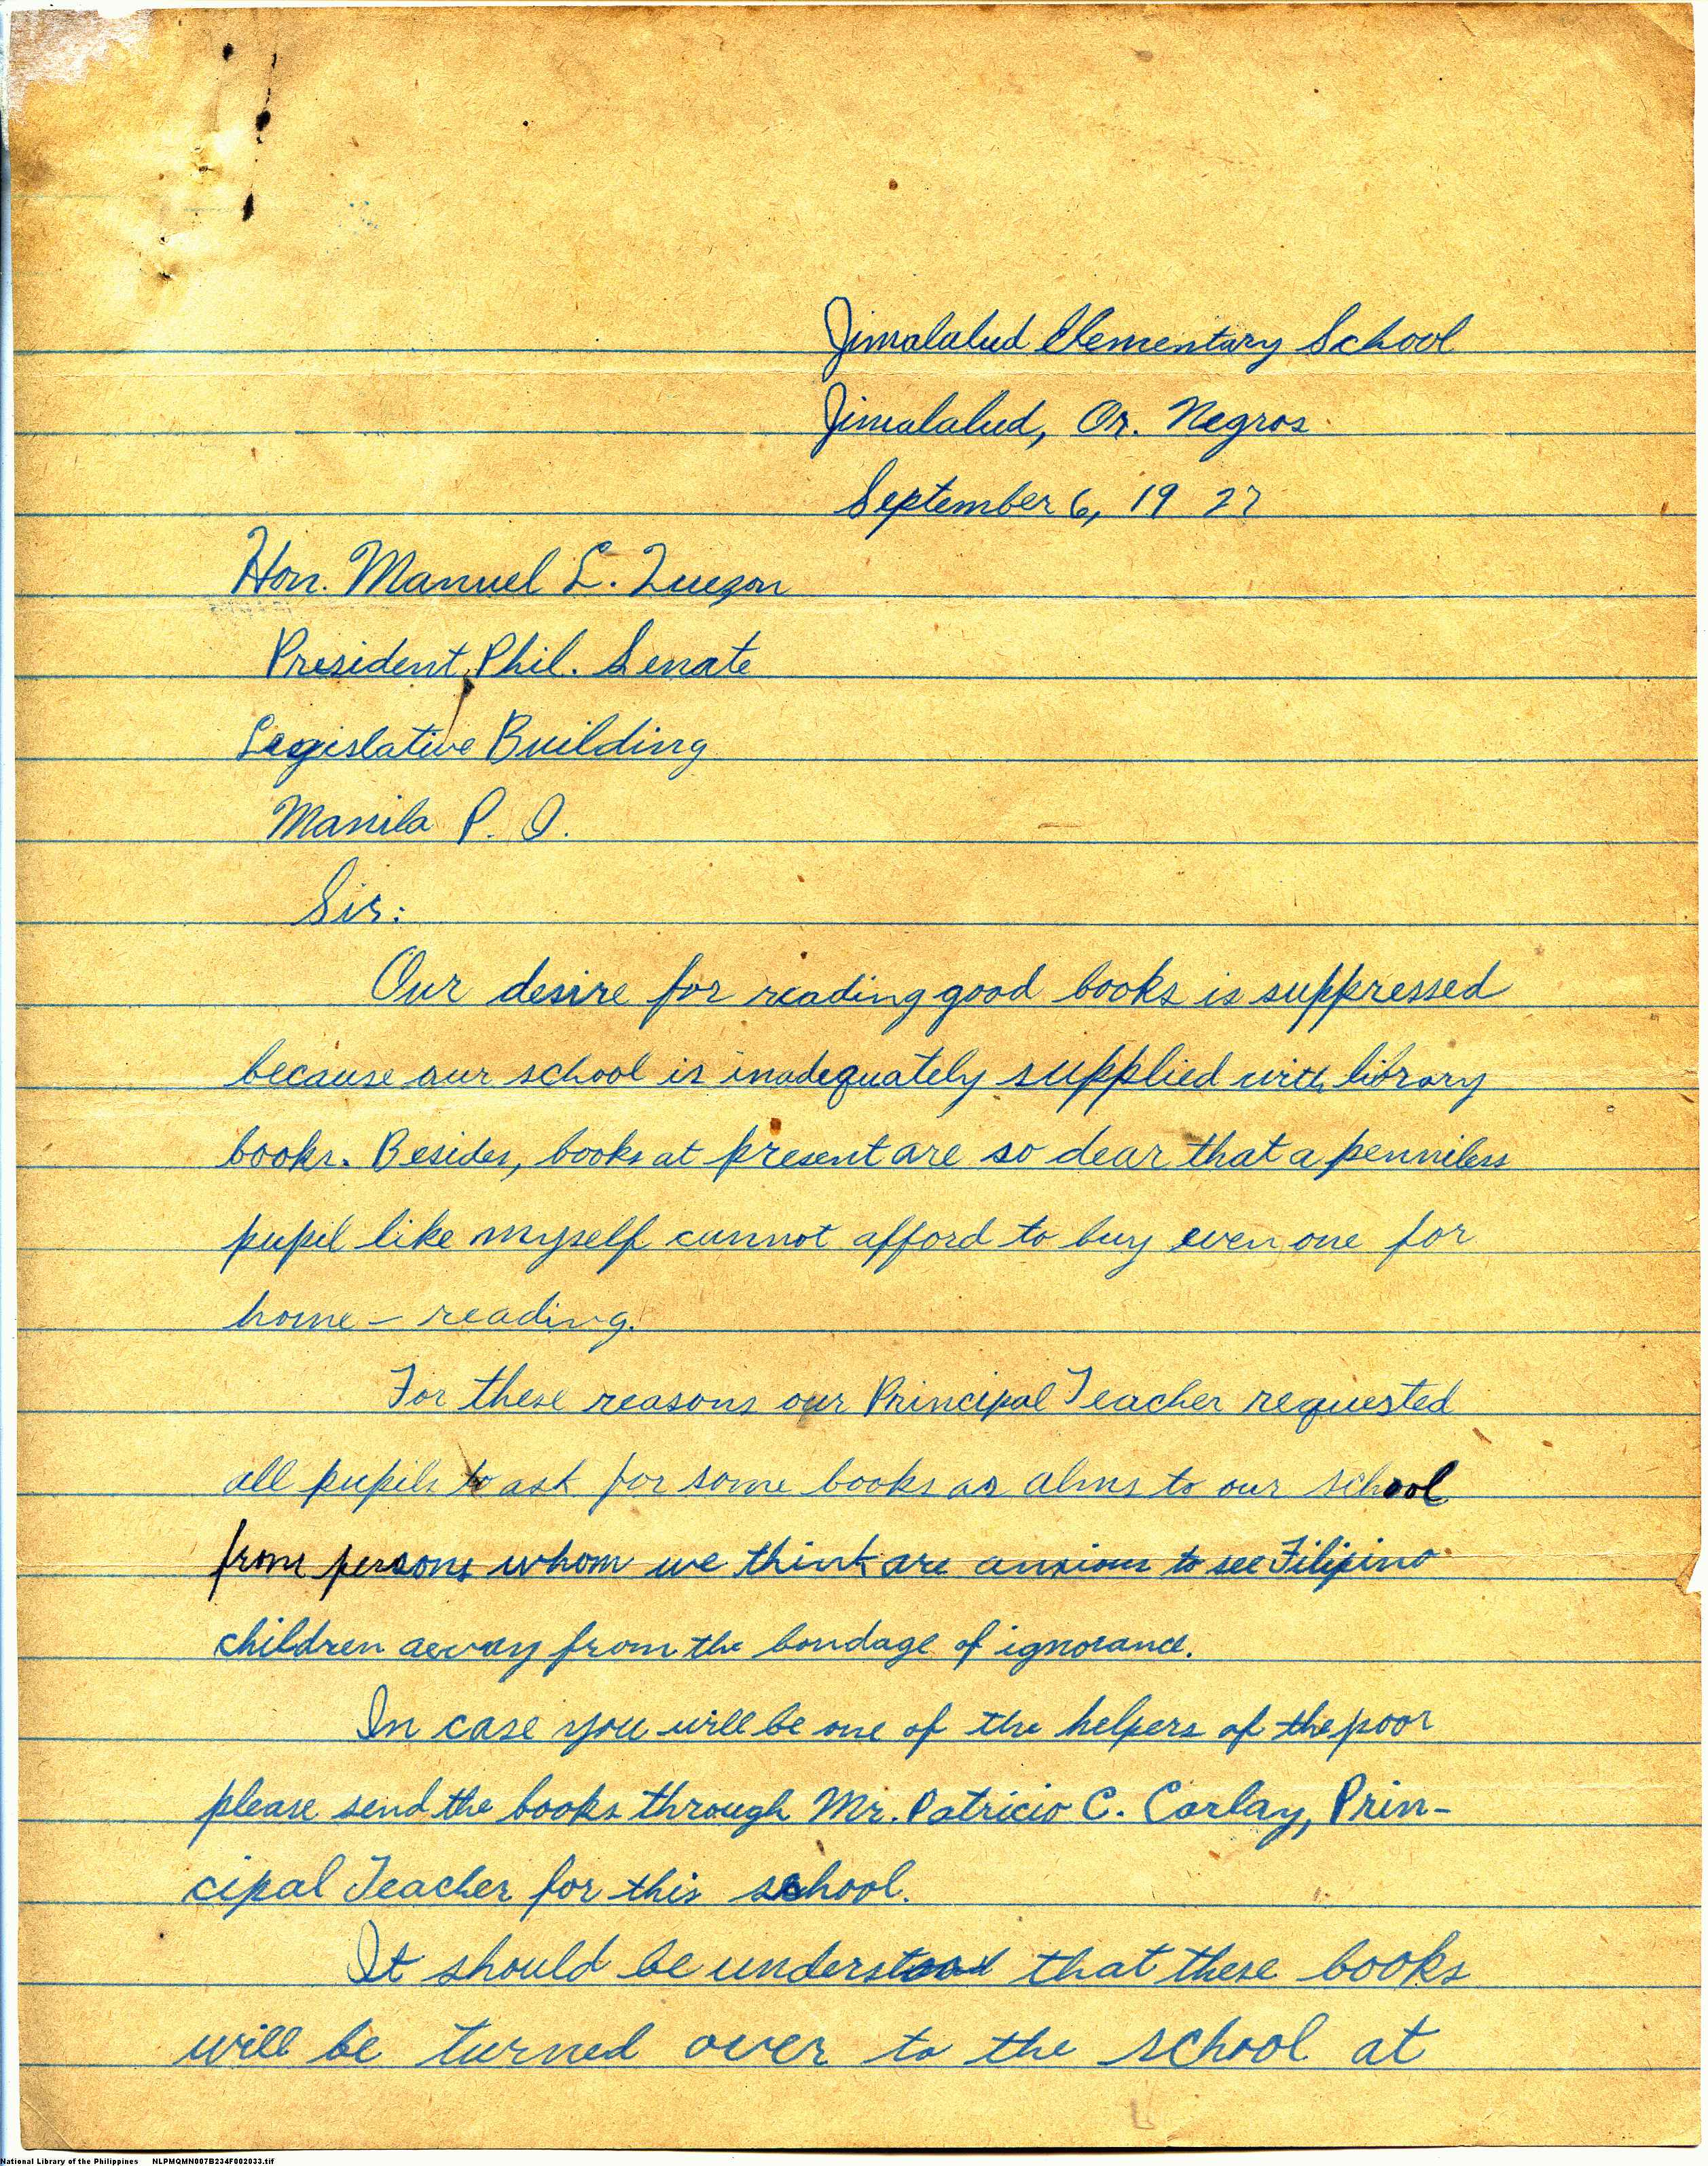 Jimalalud Elementary School
Jimalalud, Or. Negros
September 6, 19 27
Hon. Manuel L. Quezon
President, Phil. Senate
Legislative Building
Manila P. I.
Sir:
Our desire for reading good books is suppressed
because our school is inadequately supplied with library
books. Besides, books at present are so dear that a penniless
pupil like myself cannot afford to buy even one for
home-reading.
For these reasons our Principal Teacher requested
all pupils to ask for some books as alms to our school
from persons whom we think are anxious to see Filipino
children away from the bondage of ignorance.
In case you will be one of the helpers of the poor
please send the books through Mr. Patricio C. Carlay, Prin-
cipal Teacher for this school.
It should be understood that these books
will be turned over to the school at
National Library of the Philippines NLPMQMN007B234F002033.tif